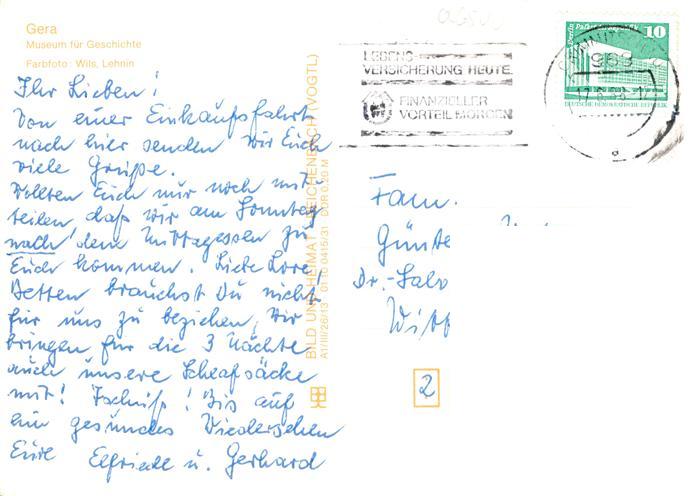 Gera
Museum für Geschichte
Farbfoto: Wils, Lehnin
Ihr Lieben!
Von einer Einkaufsfahrt
nach hier senden wir Euch
viele Grüße.
Wollten Euch nur noch mit-
teilen, daß wir am Sonntag
nach dem Mittagessen zu
Euch kommen. Liebe Lore,
Betten brauchst Du nicht
für uns zu beziehen, wir
bringen für die 3 Nächte
auch unsere Schlafsäcke
mit! Tschüß! Bis auf
ein gesundes Wiedersehen
Eure Elfriede u. Gerhard
BILD UND HEIMAT REICHENBACH (VOGTL)
A1/III/26/13 01 10 0415/31 DDR 0,20 M
LEBENS-
VERSICHERUNG HEUTE
FINANZIELLER
VORTEIL MORGEN
10
DEUTSCHE DEMOKRATISCHE REPUBLIK
Fam.
Günte
Dr.-Salv
Witt
2